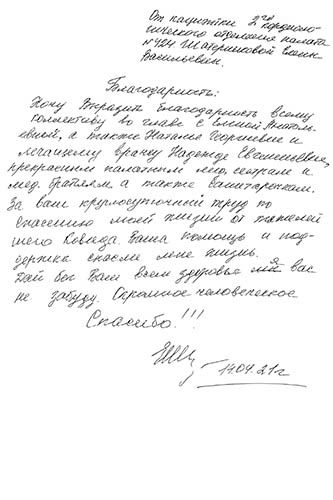 От пациентки 2го кардиоло-
гического отделения палата
№424 Шатериковой Елены
Васильевны.
Благодарность:
Хочу Выразить благодарность всему
коллективу во главе с Еленой Анатоль
евной, а также Наталье Георгиевне и
лечащему врачу Надежде Евгеньевне,
прекрасным палатным мед. сестрам и
мед. братьям а также санитарочкам.
За ваш круглосуточный труд по
спасению моей жизни от тяжелей
шего Ковида. Ваша помощь и под-
держка спасли мне жизнь.
Дай бог Вам всем здоровья Я вас
не забуду. Огромное человеческое
Спасибо!!!
14.04.21г